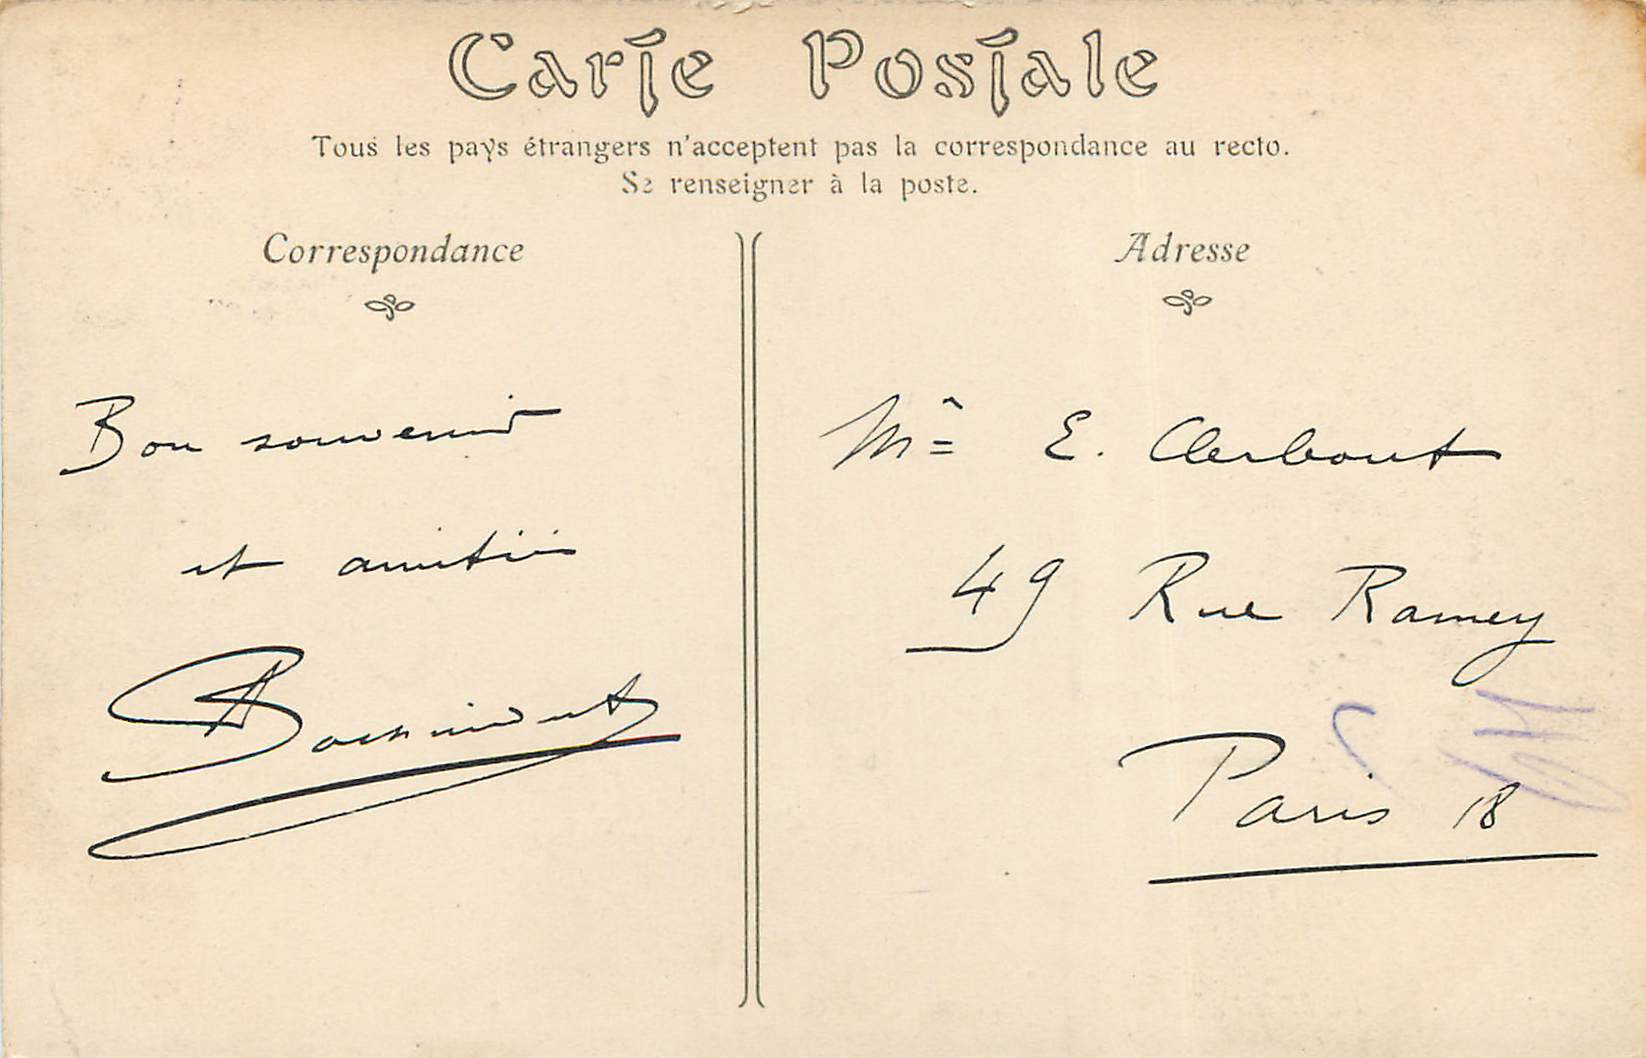 Carte Postale
Tous les pays étrangers n'acceptent pas la correspondance au recto.
Se renseigner à la poste.
Correspondance
Adresse
Bon souvenir
et amitiés
M E. Clerbout
49 Rue Ramey
Paris 18